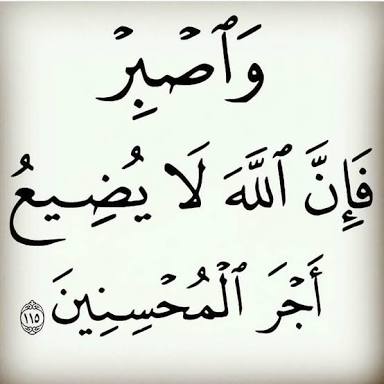 وَٱصۡبِرۡ
فَإِنَّ ٱللَّهَ لَا يُضِيعُ
أَجۡرَ ٱلۡمُحۡسِنِينَ ١١٥